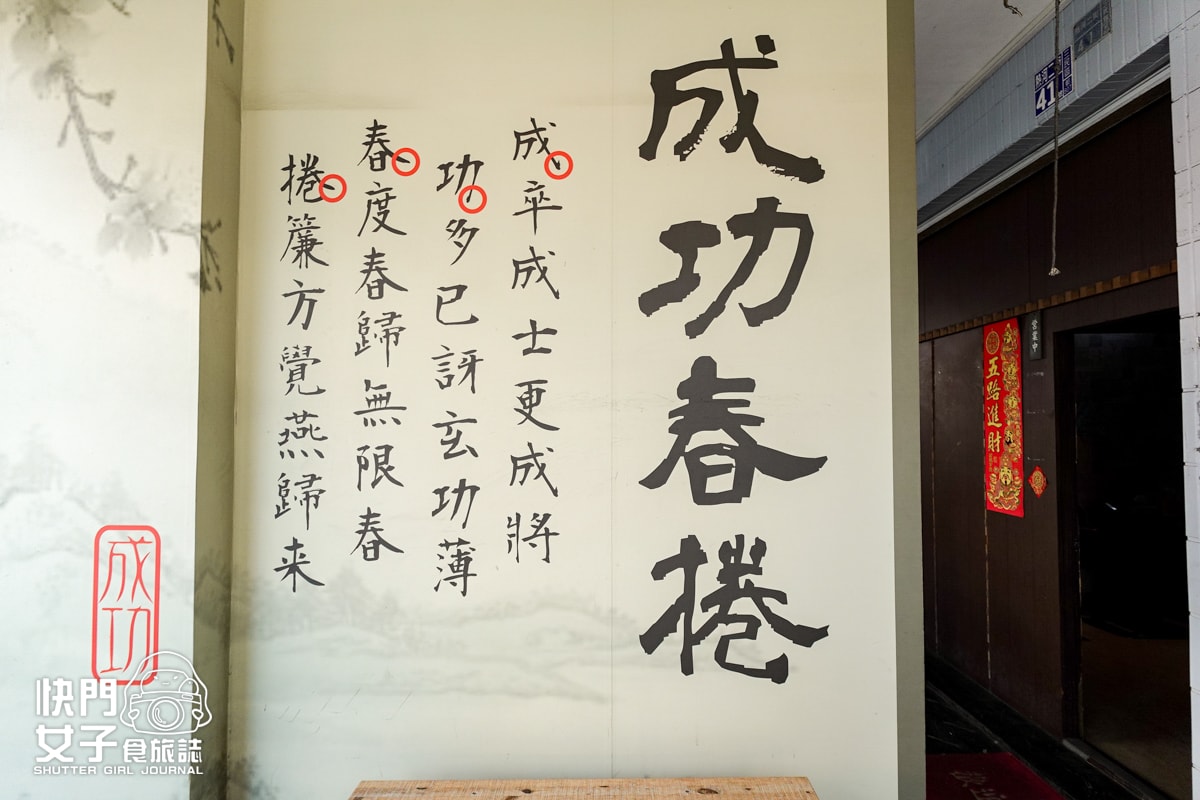 成功春捲
成卒成士更成將
功多已訝玄功薄
春度春歸無限春
捲簾方覺燕歸来
成功
快門
女子食旅誌
SHUTTER GIRL JOURNAL
41
營業中
五路進財